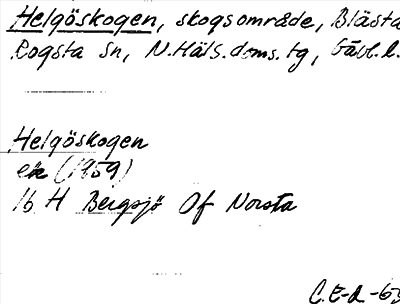 Helgöskogen, skogsområde, Blästa
Rogsta Sn, N.Häls.doms.tg, Gävl.l.
Helgöskogen
ek (1959)
16 H Bergsjö Of Norsta
C.E-d.-63